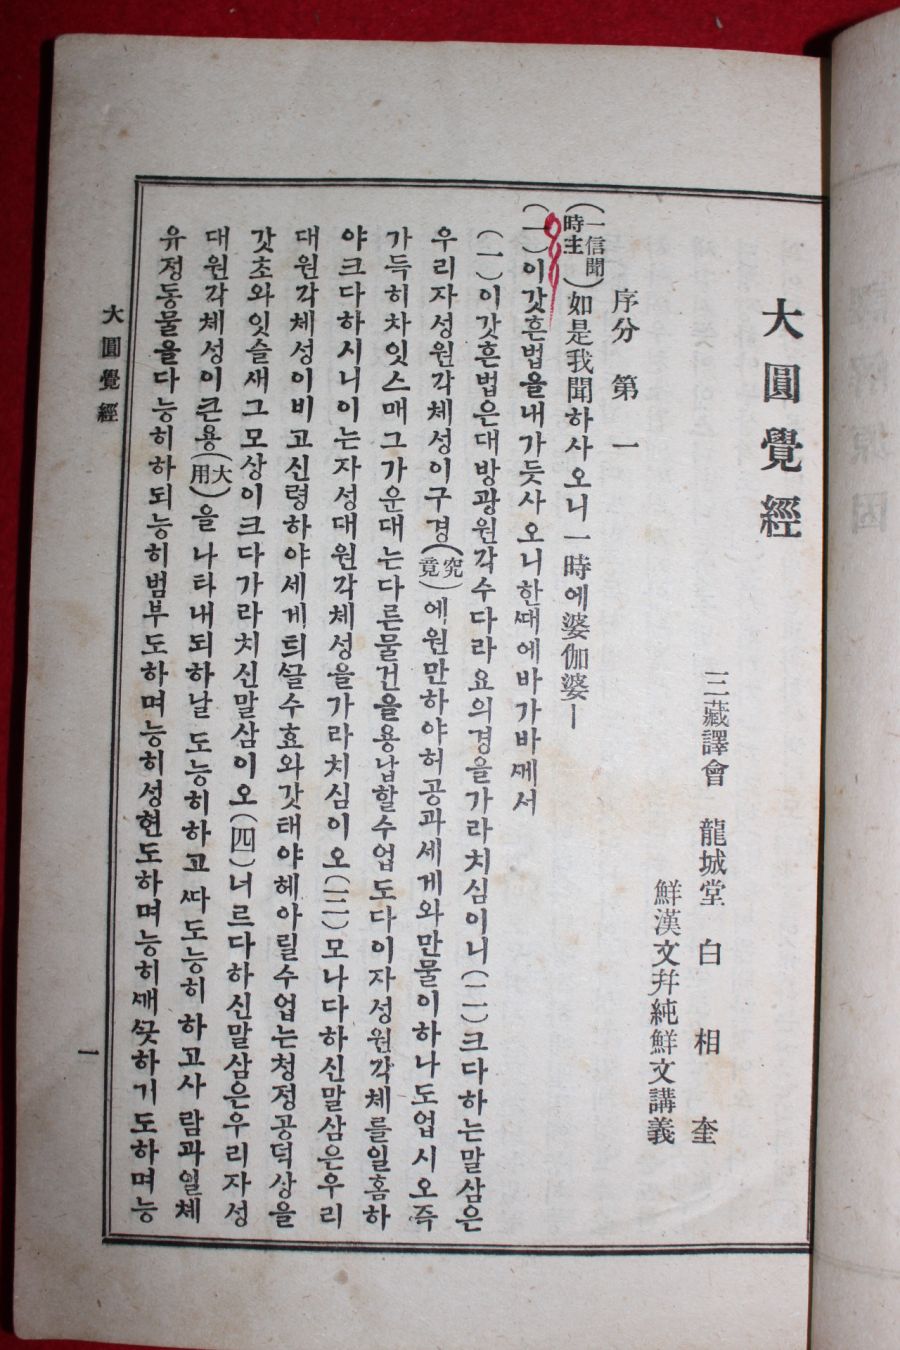 大圓覺經
三藏譯會 龍城堂 白相奎
鮮漢文幷純鮮文講義
序分 第一
(一信聞時主)如是我聞하사오니一時에婆伽婆ㅣ
(一)이갓흔법을내가듯사오니한ᄯᅢ에바가바ᄭᅦ서
(一)이갓흔법은대방광원각수다라요의경을가라치심이니(二)크다하는말삼은
우리자성원각체성이구경(究竟)에원만하야허공과세게와만물이하나도업시오즉
가득히차잇스매그가운대는다른물건을용납할수업도다이자성원각체를일홈하
야크다하시니이는자성대원각체성을가라치심이오(三)모나다하신말삼은우리
대원각체성이비고신령하야세게틔ᄭᅳᆯ수효와갓태야헤아릴수업는청정공덕상을
갓초와잇슬새그모상이크다가라치신말삼이오(四)너르다하신말삼은우리자성
대원각체성이큰용(大用)을나타내되하날도능히하고ᄯᅡ도능히하고사람과일체
유정동물을다능히하되능히범부도하며능히성현도하며능히ᄭᅢᄭᅳᆺ하기도하며능
大圓覺經
一